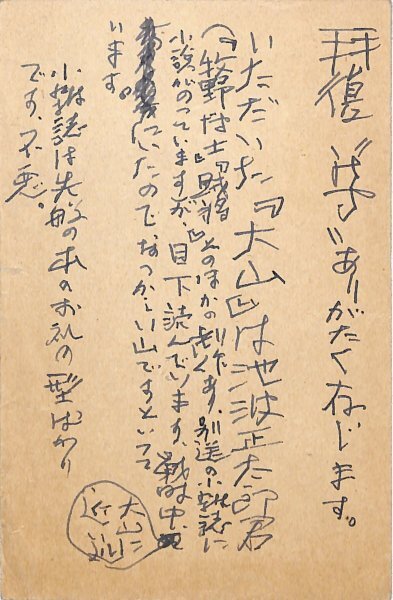 拝復 ありがたく存じます。
いただいた『大山』は池波正太郎君
(『牧野博士』『賊将』そのほかの劇作あり、別送の小雑誌に
小説がのっていますが、目下読んでいます、戦時中、
にいたので、なつかしい山ですといって
います。
小雑誌は先般の本のお礼の型ばかり
です、不悪。
大山ニ
近